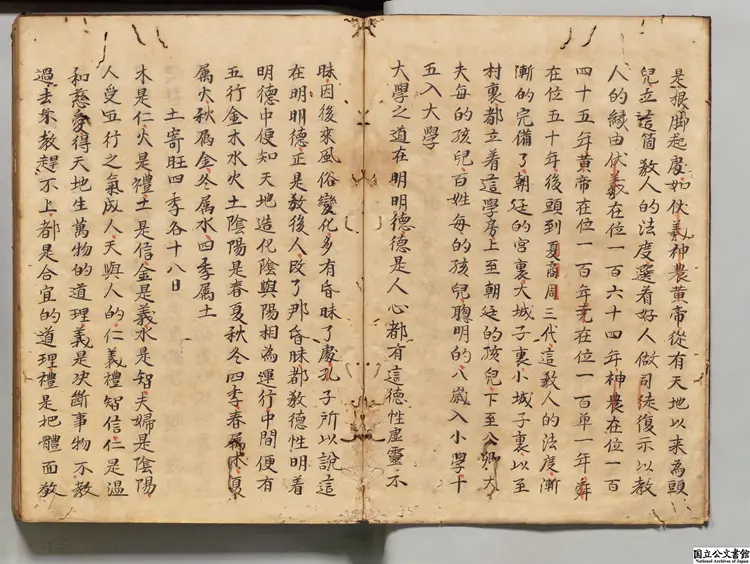 是根脚起處如伏羲神農黃帝從有天地以來為頭
兒立這箇教人的法度選着好人做司徒復示以教
人的緣由伏羲在位一百六十四年神農在位一百
四十五年黃帝在位一百年尭在位一百单一年舜
在位五十年後頭到夏商周三代這教人的法度漸
漸的完備了朝廷的宮裏大城子裏小城子裏以至
村裏都立着這學房上至朝廷的孩兒下至公卿大
夫每的孩兒百姓每的孩兒聰明的八歲入小學十
五入大學
大學之道在明明德德是人心都有這德性虛靈不
昧因後來風俗變化多有昏昧了處孔子所以說這
在明明德正是教後人改了那昏昧都教德性明着
明德中便知天地造化陰與陽相為運行中間便有
五行金木水火土陰陽是春夏秋冬四季春属木夏
属火秋属金冬属水四季属土
土寄旺四季各十八日
木是仁火是禮土是信金是義水是智夫婦是陰陽
人受五行之氣成人天與人的仁義禮智信仁是温
和慈愛得天地生萬物的道理義是决斷事物不教
過去不教趕不上都是合宜的道理禮是把體面敎
国立公文書館
National Archives of Japan